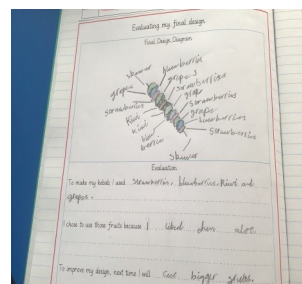 Evaluating my final design
Final Design Diagram
skewer
blueberries
grapes
grapes
strawberries
strawberries
grape
Kiwi
strawberries
kiwi
grape
blueberries
strawberries
skewer
Evaluation
To make my kebab I used strawberries, blueberries, Kiwi and
grapes.
I chose to use these fruits because I liked them alot.
To improve my design, next time I will cut bigger